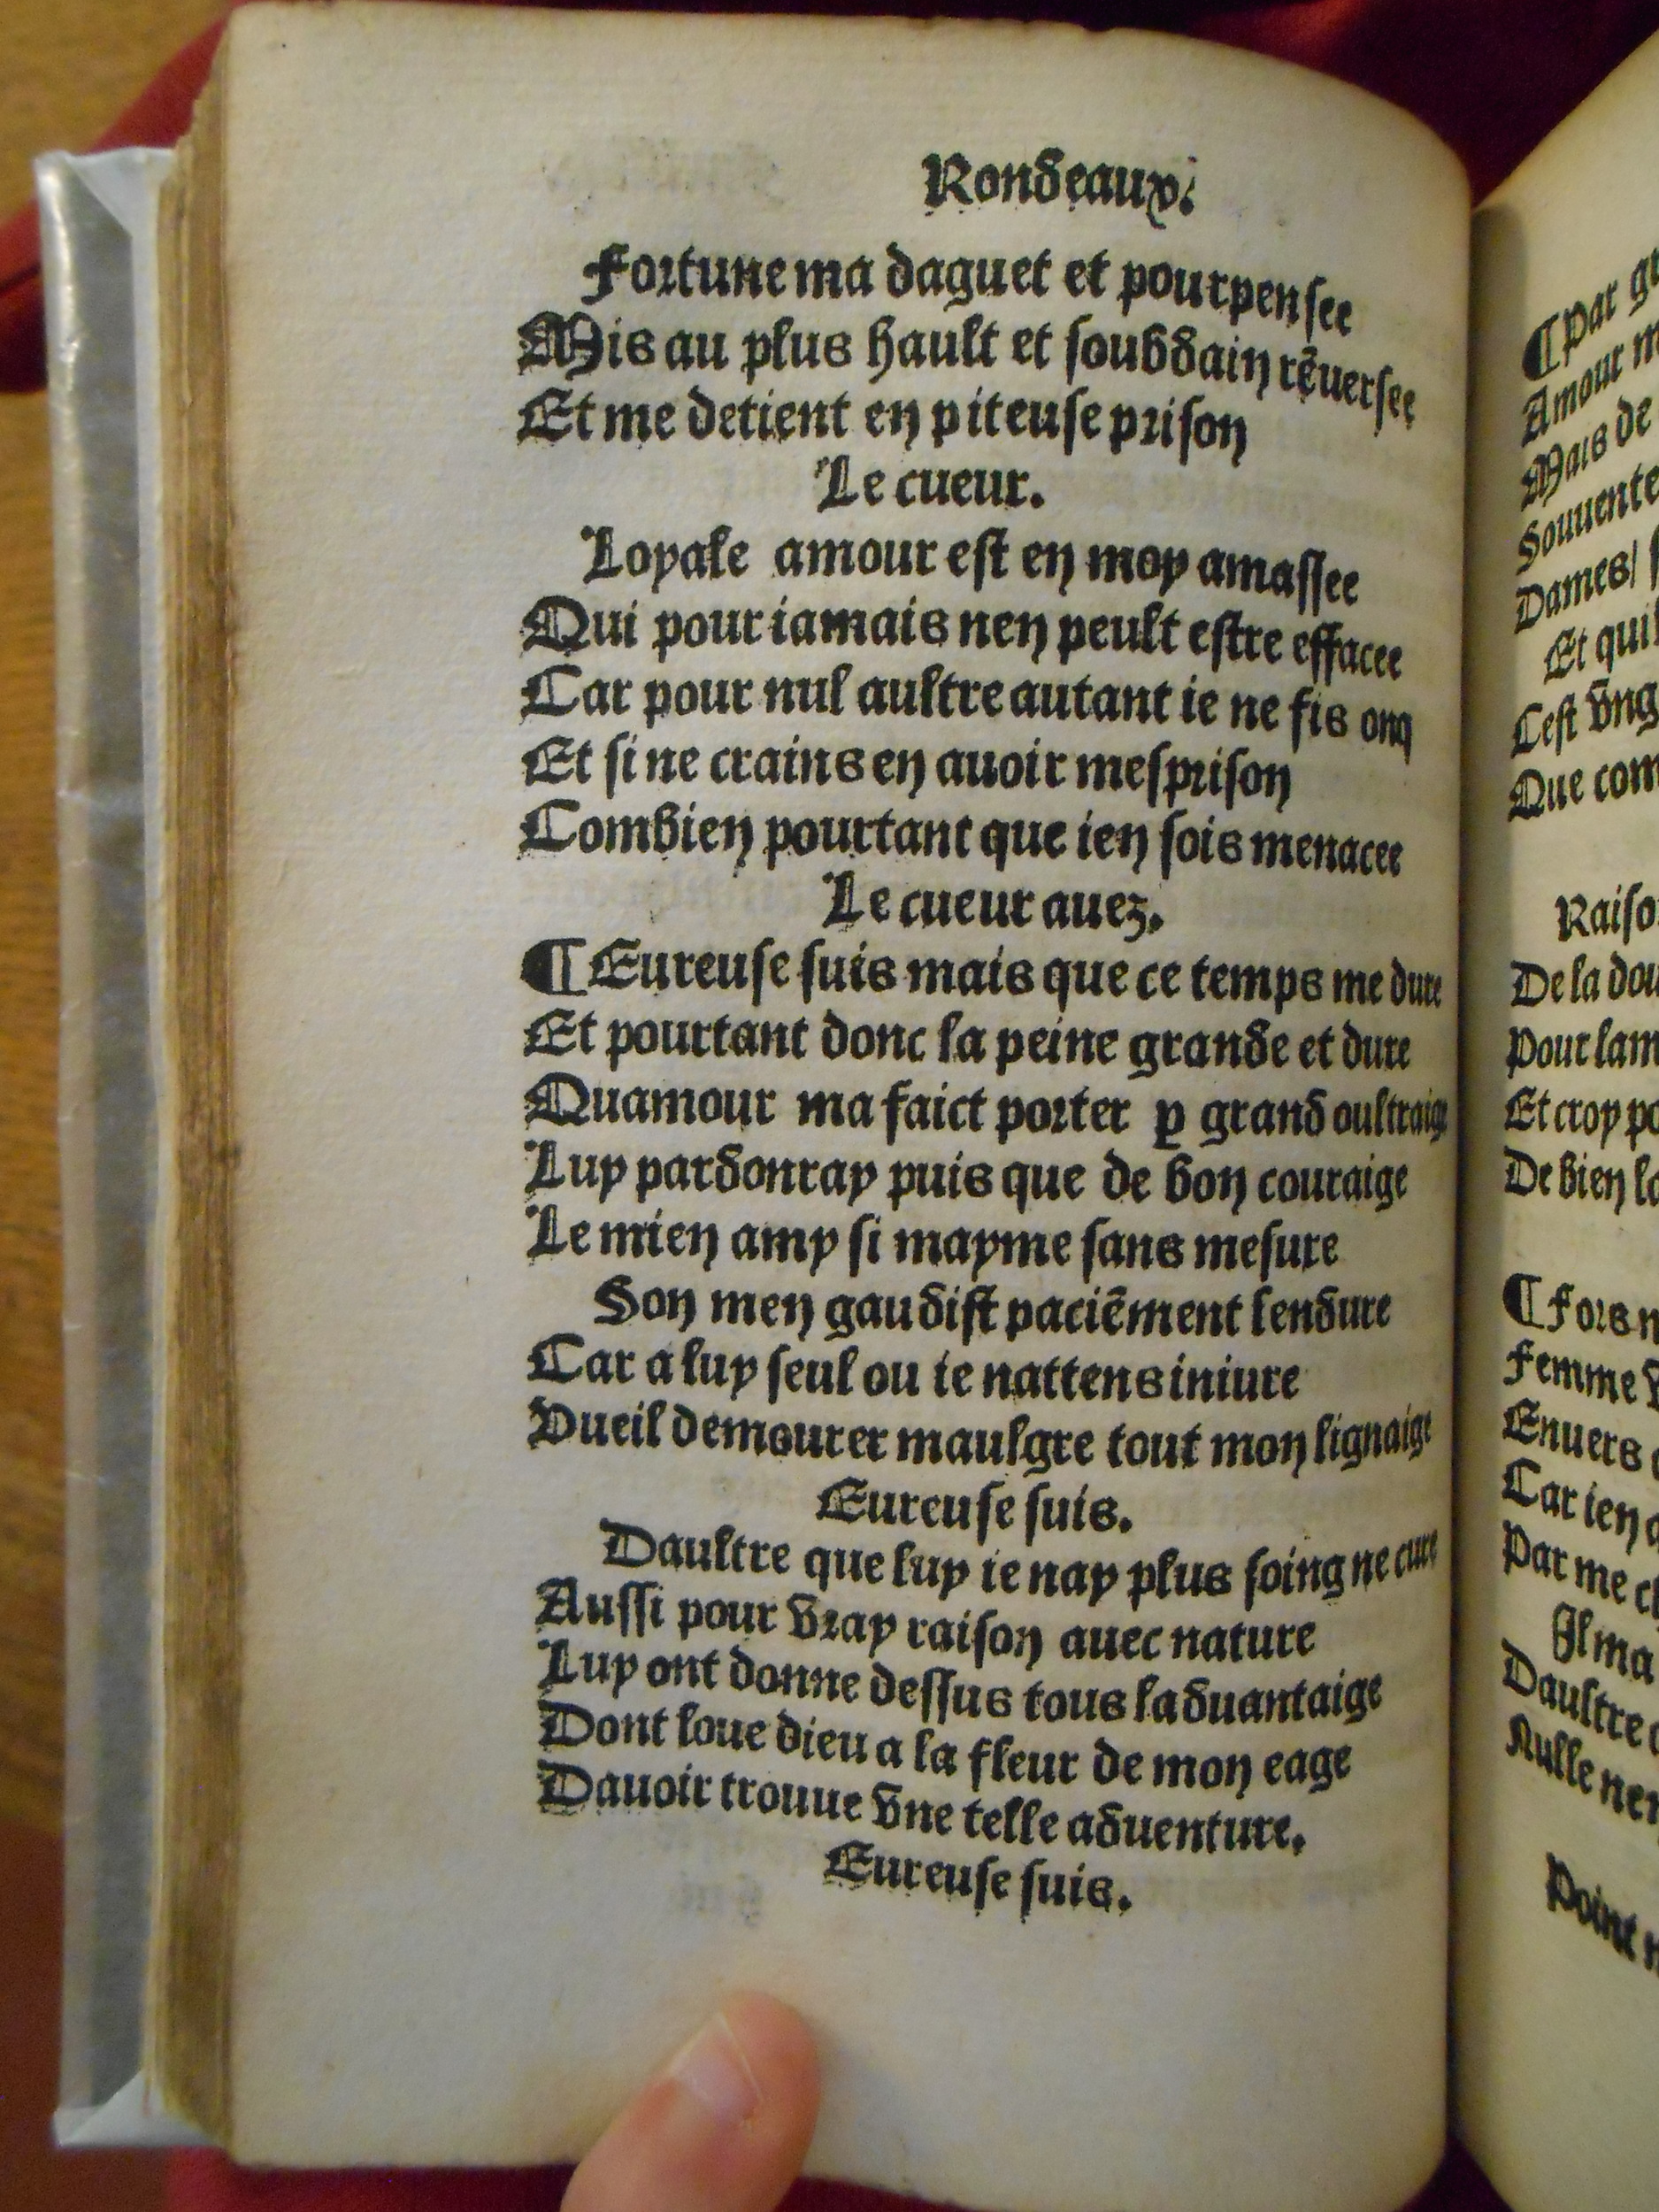 Rondeaux.
Fortune ma daguet et pourpensee
Mis au plus hault et soubdain rēuersee
Et me detient en piteuse prison
Le cueur.
Loyale amour est en moy amassee
Qui pour iamais nen peult estre effacee
Car pour nul aultre autant ie ne fis onq
Et si ne crains en auoir mesprison
Combien pourtant que ien sois menacee
Le cueur auez.
¶ Eureuse suis mais que ce temps me dure
Et pourtant donc la peine grande et dure
Quamour ma faict porter ꝑ grand oultraige
Luy pardonray puis que de bon couraige
Le mien amy si mayme sans mesure
Son men gaudist paciēment lendure
Car a luy seul ou ie nattens iniure
Vueil demourer maulgre tout mon lignaige
Eureuse suis.
Daultre que luy ie nay plus soing ne cure
Aussi pour vray raison auec nature
Luy ont donne dessus tous laduantaige
Dont loue dieu a la fleur de mon eage
Dauoir trouue vne telle aduenture.
Eureuse suis.
¶ Par
Amour
Mais de
Dames/
Et
Cest vng
Que
De la
Pour
Et croy
De bien
¶ Fors
Femme
Enuers
Car ien
Par me
Il ma
Daultre
Nulle
Point